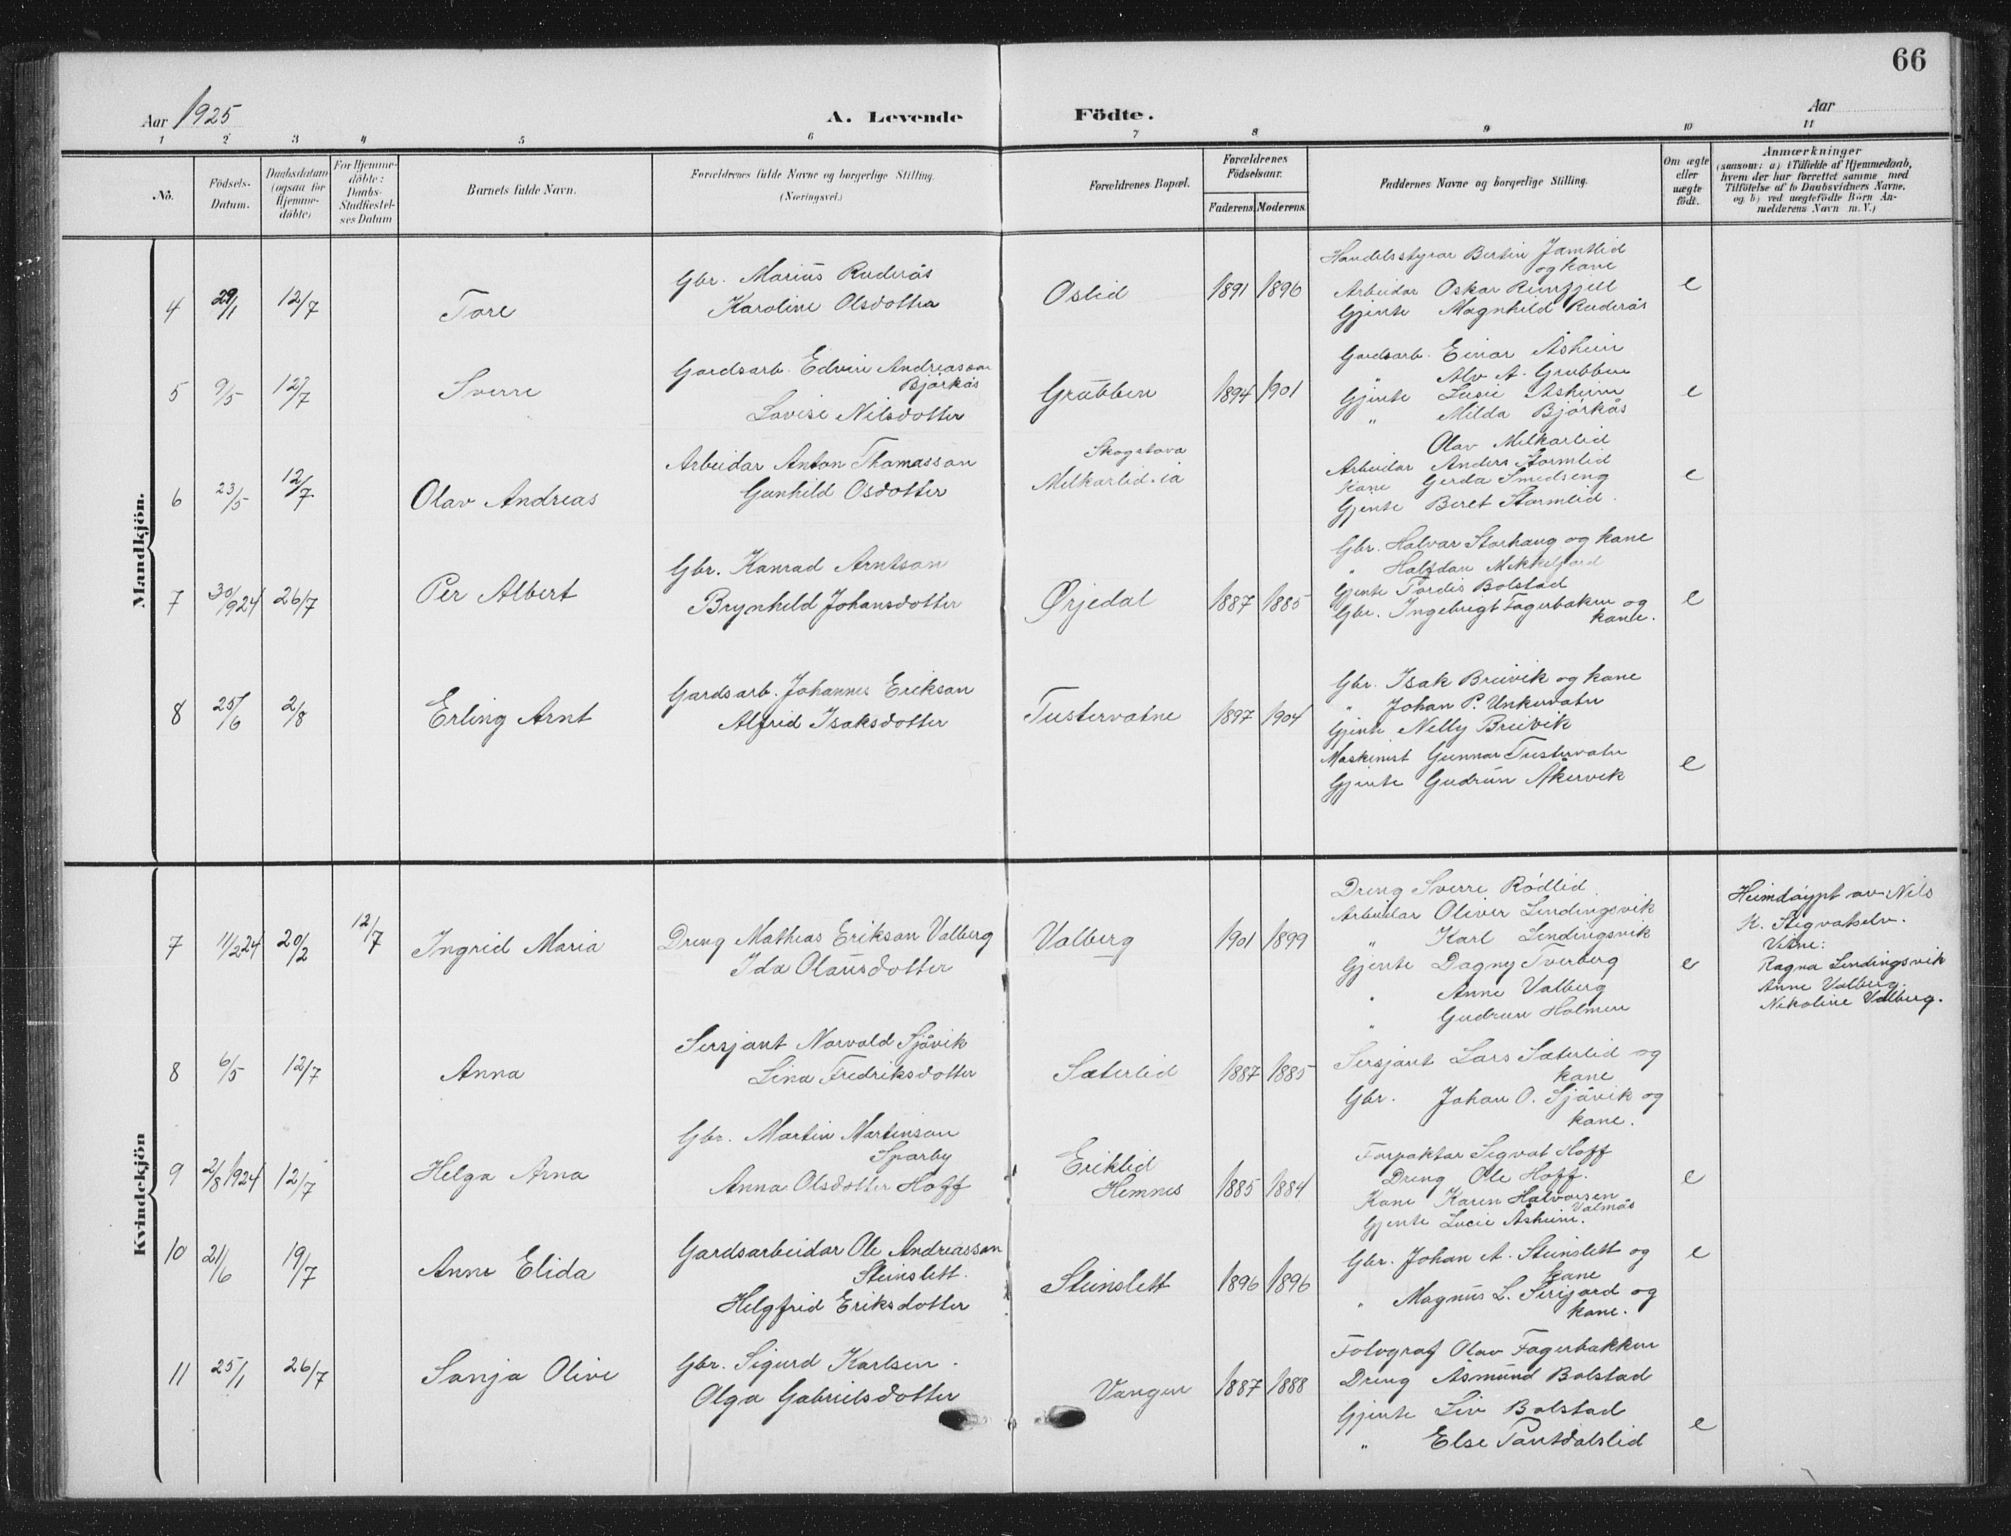 66
Aar 1925
A. Levende Födte.
Aar
1 2 3 4 5 6 7 8 9 10 11
No.
Födsels-
Datum.
Daabsdatum
(ogsaa for
Hjemme-
döbte)
For Hjemme-
döbte:
Daabs-
Stadfæstel-
ses Datum
Barnets fulde Navn.
Forældrenes fulde Navne og borgerlige Stilling.
(Næringsvei.)
Forældrenes Bopæl.
Forældrenes
Födselsaar.
Faderens. Moderens.
Faddernes Navne og borgerlige Stilling.
Om ægte
eller
uægte
födt.
Anmærkninger
(saasom: a) i Tilfælde af Hjemmedaab,
hvem der har forrettet samme med
Tilföielse af to Daabsvidners Navne,
og b) ved uægtefödte Börn An-
melderens Navn m. V.)
Mandkjön.
4 29/1 12/7 Tore
Gbr. Marius Ruderås
Karoline Olsdotter
Oslid 1891 1896
Handelsstyrar Bertin Jamtlid
og kane
Arbeidar Oskar Renfjell
Gjente Magnhild Ruderås
e
5 9/5 12/7 Sverre
Gardsarb. Edvin Andreasson
Bjørkås
Lovise Nilsdotter
Grubben 1894 1901
Gardsarb. Einar Åsheim
" Alv A. Grubben
Gjente Lusie Åsheim
" Milda Bjørkås
e
6 23/5 12/7 Olav Andreas
Arbeidar Anton Thomasson
Gunhild Osdotter
Skogstova
Milkarlid.ia
" Olav Milkarlid
Arbeidar Anders Stormlid
Kane Gerda Smedseng
Gjente Beret Stormlid.
e
7 30/1924 26/7 Per Albert
Gbr. Konrad Arntson
Brynhild Johansdotter
Ørjedal 1887 1885
Gbr. Halvar Storhaug og kane
" Halfdan Mikkeljord
Gjente Tordis Bolstad
Gbr. Ingebrigt Fagerbakke og
kane.
e
8 25/6 2/8 Erling Arnt
Gardsarb. Johannes Erikson
Alfrid Isaksdotter
Tustervatne 1897 1904
Gbr. Isak Breivik og kane
" Johan P. Unkervatn
Gjente Nelly Breivik
Maskinist Gunnar Tustervatn
Gjente Gudrun Åkervik
e
Kvindekjön
7 11/2 24 20/2 12/7 Ingrid Maria
Dreng Mathias Erikson Valberg
Ida Olausdotter
Valberg 1901 1899
Dreng Sverre Rødlid.
Arbeidar Oliver Lendingsvik
" Karl Lendingsvik
Gjente Dagny Tverberg
" Anne Valberg
" Gudrun Holmen
e
Heimdøypt av Nils
K. Stigvatselv.
Vitne:
Ragna Lendingsvik
Anne Valberg.
Nikoline Valberg.
8 6/5 12/7 Anna
Sersjant Norvald Sjåvik
Lina Fredriksdotter
Sæterlid 1887 1885
Sersjant Lars Sæterlid og
kane
Gbr. Johan O. Sjåvik og
kane.
9 2/8 1924 12/7 Helga Arna
Gbr. Martin Martinson
Sparby
Anna Olsdotter Hoff
Eriklid
Hemnes 1885 1884
Forpaktar Sigvat Hoff
Dreng Ole Hoff.
Kane Karen Halvorsen
Valmås
Gjente Lucie Åsheim.
e
10 21/6 19/7 Anne Elida
Gardsarbeidar Ole Andreasson
Steinslett.
Helgfrid Eriksdotter
Steinslett 1896 1896
Gbr. Johan A. Steinslett og
kane
" Magnus L. Serijord og
kane.
e
11 25/1 26/7 Sonja Olive
Gbr. Sigurd Karlsen.
Olga Gabrielsdotter
Vangen 1887 1888
Fotograf Olav Fagerbakken
Dreng Asmund Bolstad
Gjente Liv Bolstad
" Else Tautdalslid
e